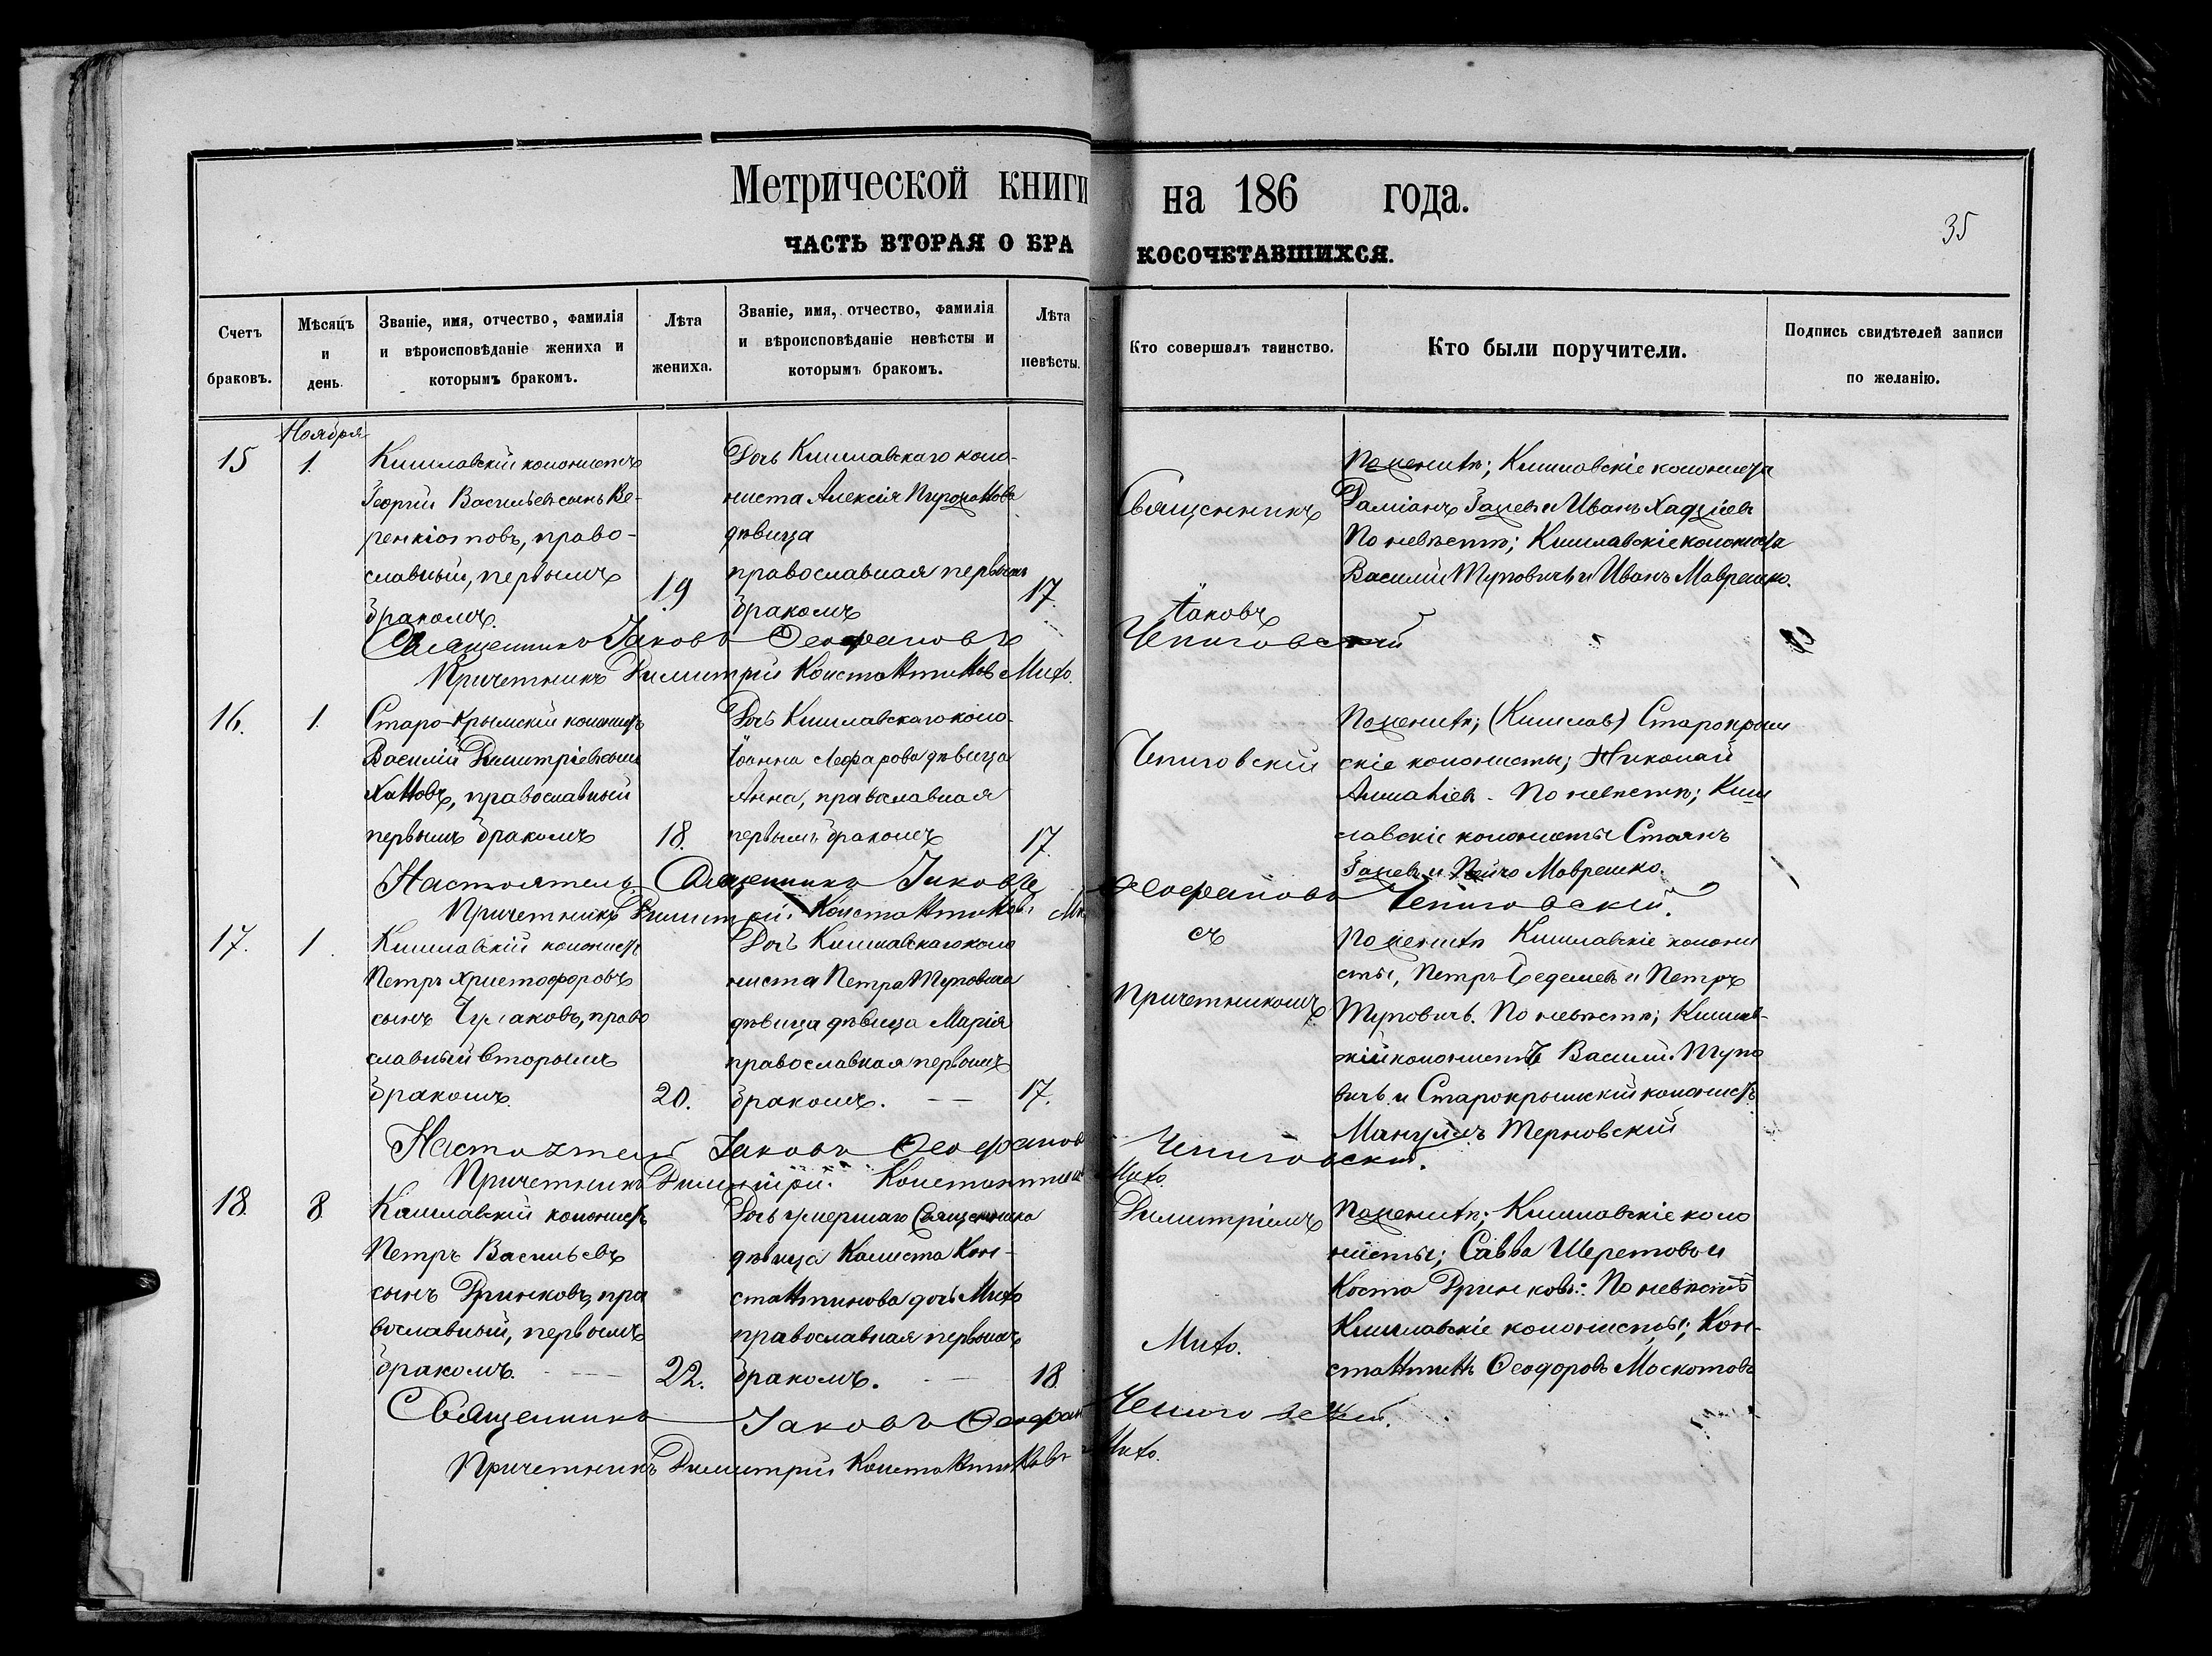 Метрической книги на 186 года.
35
ЧАСТЬ ВТОРАЯ О БРАКОСОЧЕТАВШИХСЯ.
Счетъ браковъ.
Мѣсяцъ и день.
Званіе, имя, отчество, фамилія и вѣроисповѣданіе жениха и которымъ бракомъ.
Лѣта жениха.
Званіе, имя, отчество, фамилія и вѣроисповѣданіе невѣсты и которымъ бракомъ.
Лѣта невѣсты.
Кто совершалъ таинство.
Кто были поручители.
Подпись свидѣтелей записи по желанію.
Ноября
15
1.
Кишлавскій колонистъ
Георгій Васильевъ сынъ Ве-
ренкіотовъ, право-
славный, первымъ
бракомъ.
19
Дочь Кишлавскаго коло-
ниста Алексія
дѣвица
православная первымъ
бракомъ
17.
Священникъ
Іаковъ
Чепиговскій
По женихѣ; Кишлавскіе колонисты
Даміанъ Ганевъ и Иванъ Хаджіевъ
По невѣстѣ; Кишлавскіе колонисты
Василій Туповичъ и Иванъ Маврешко.
Священникъ Іаковъ Ѳеофановъ
Причетникъ Димитрій Константиновъ Михо.
16.
1.
Старо-Крымскій колонистъ
Василій Димитріевъ сынъ
православный
первымъ бракомъ
18.
Дочь Кишлавскаго коло-
Іоанна дѣвица
Анна, православная
первымъ бракомъ
17.
Чепиговскій
По женихѣ; (Кишлав) Старокрым
скіе колонисты; Николай
По невѣстѣ; Киш
лавскіе колонисты Стоянъ
Ганевъ и Пейчо Маврешко.
Настоятель Священникъ Іаковъ Ѳеофановъ Чепиговскій.
Причетникъ Димитрій Константиновъ
17.
1.
Кишлавскій колонистъ
Петръ Христофоровъ
сынъ право
славный вторымъ
бракомъ.
20.
Дочь Кишлавскаго коло
ниста Петра Туповича
дѣвица дѣвица Марія
православная первымъ
бракомъ.
17.
съ
Причетникомъ
По женихѣ Кишлавскіе колони
сты, Петръ и Петръ
Туповичъ. По невѣстѣ; Кишлав-
скій колонистъ Василій Тупо
вичъ и Старокрымскій колонистъ
Мануилъ Терновскій
Настоятель Іаковъ Ѳеофановъ Чепиговскій.
Причетникъ Димитрій Константиновъ Михо.
18.
8
Кишлавскій колонистъ
Петръ Васильевъ
сынъ Дринковъ, пра
вославный, первымъ
бракомъ.
22.
Дочь умершаго Священника
дѣвица Калиста Кон-
стантинова дочь Михо
православная первымъ
бракомъ.
18.
Димитріемъ
Михо.
По женихѣ; Кишлавскіе коло
нисты; Савва Шеретовъ и
Коста Дринковъ: По невѣстѣ
Кишлавскіе колонисты; Кон-
стантинъ Ѳеодоровъ Москотовъ
Священникъ Іаковъ Ѳеофан Чепиговскій.
Причетникъ Димитрій Константиновъ Михо.